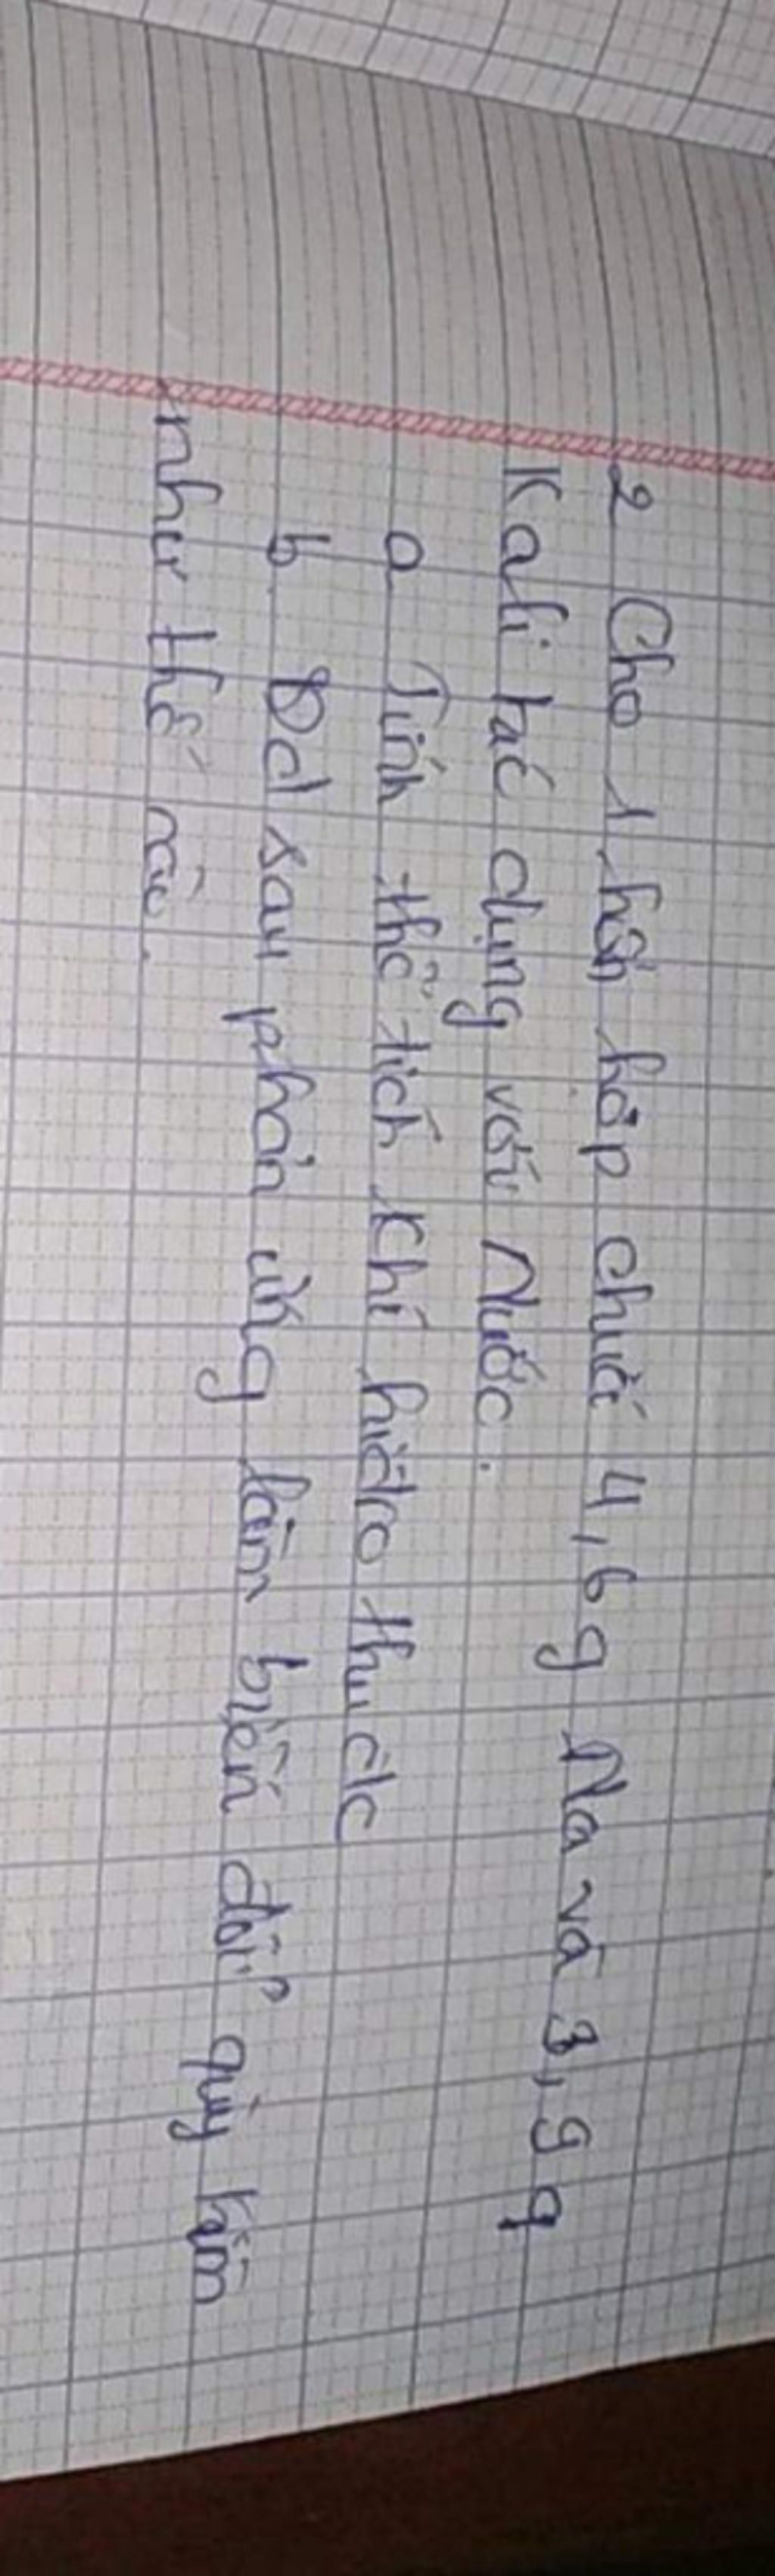 2 Cho 1 hỗn hợp chứa 4,6 g Na và 3,9 g
Kali tác dụng với Nước.
a Tính thể tích khí hiđro thu đc
b. Dd sau phản ứng làm biến đổi quỳ tím
như thế nào.